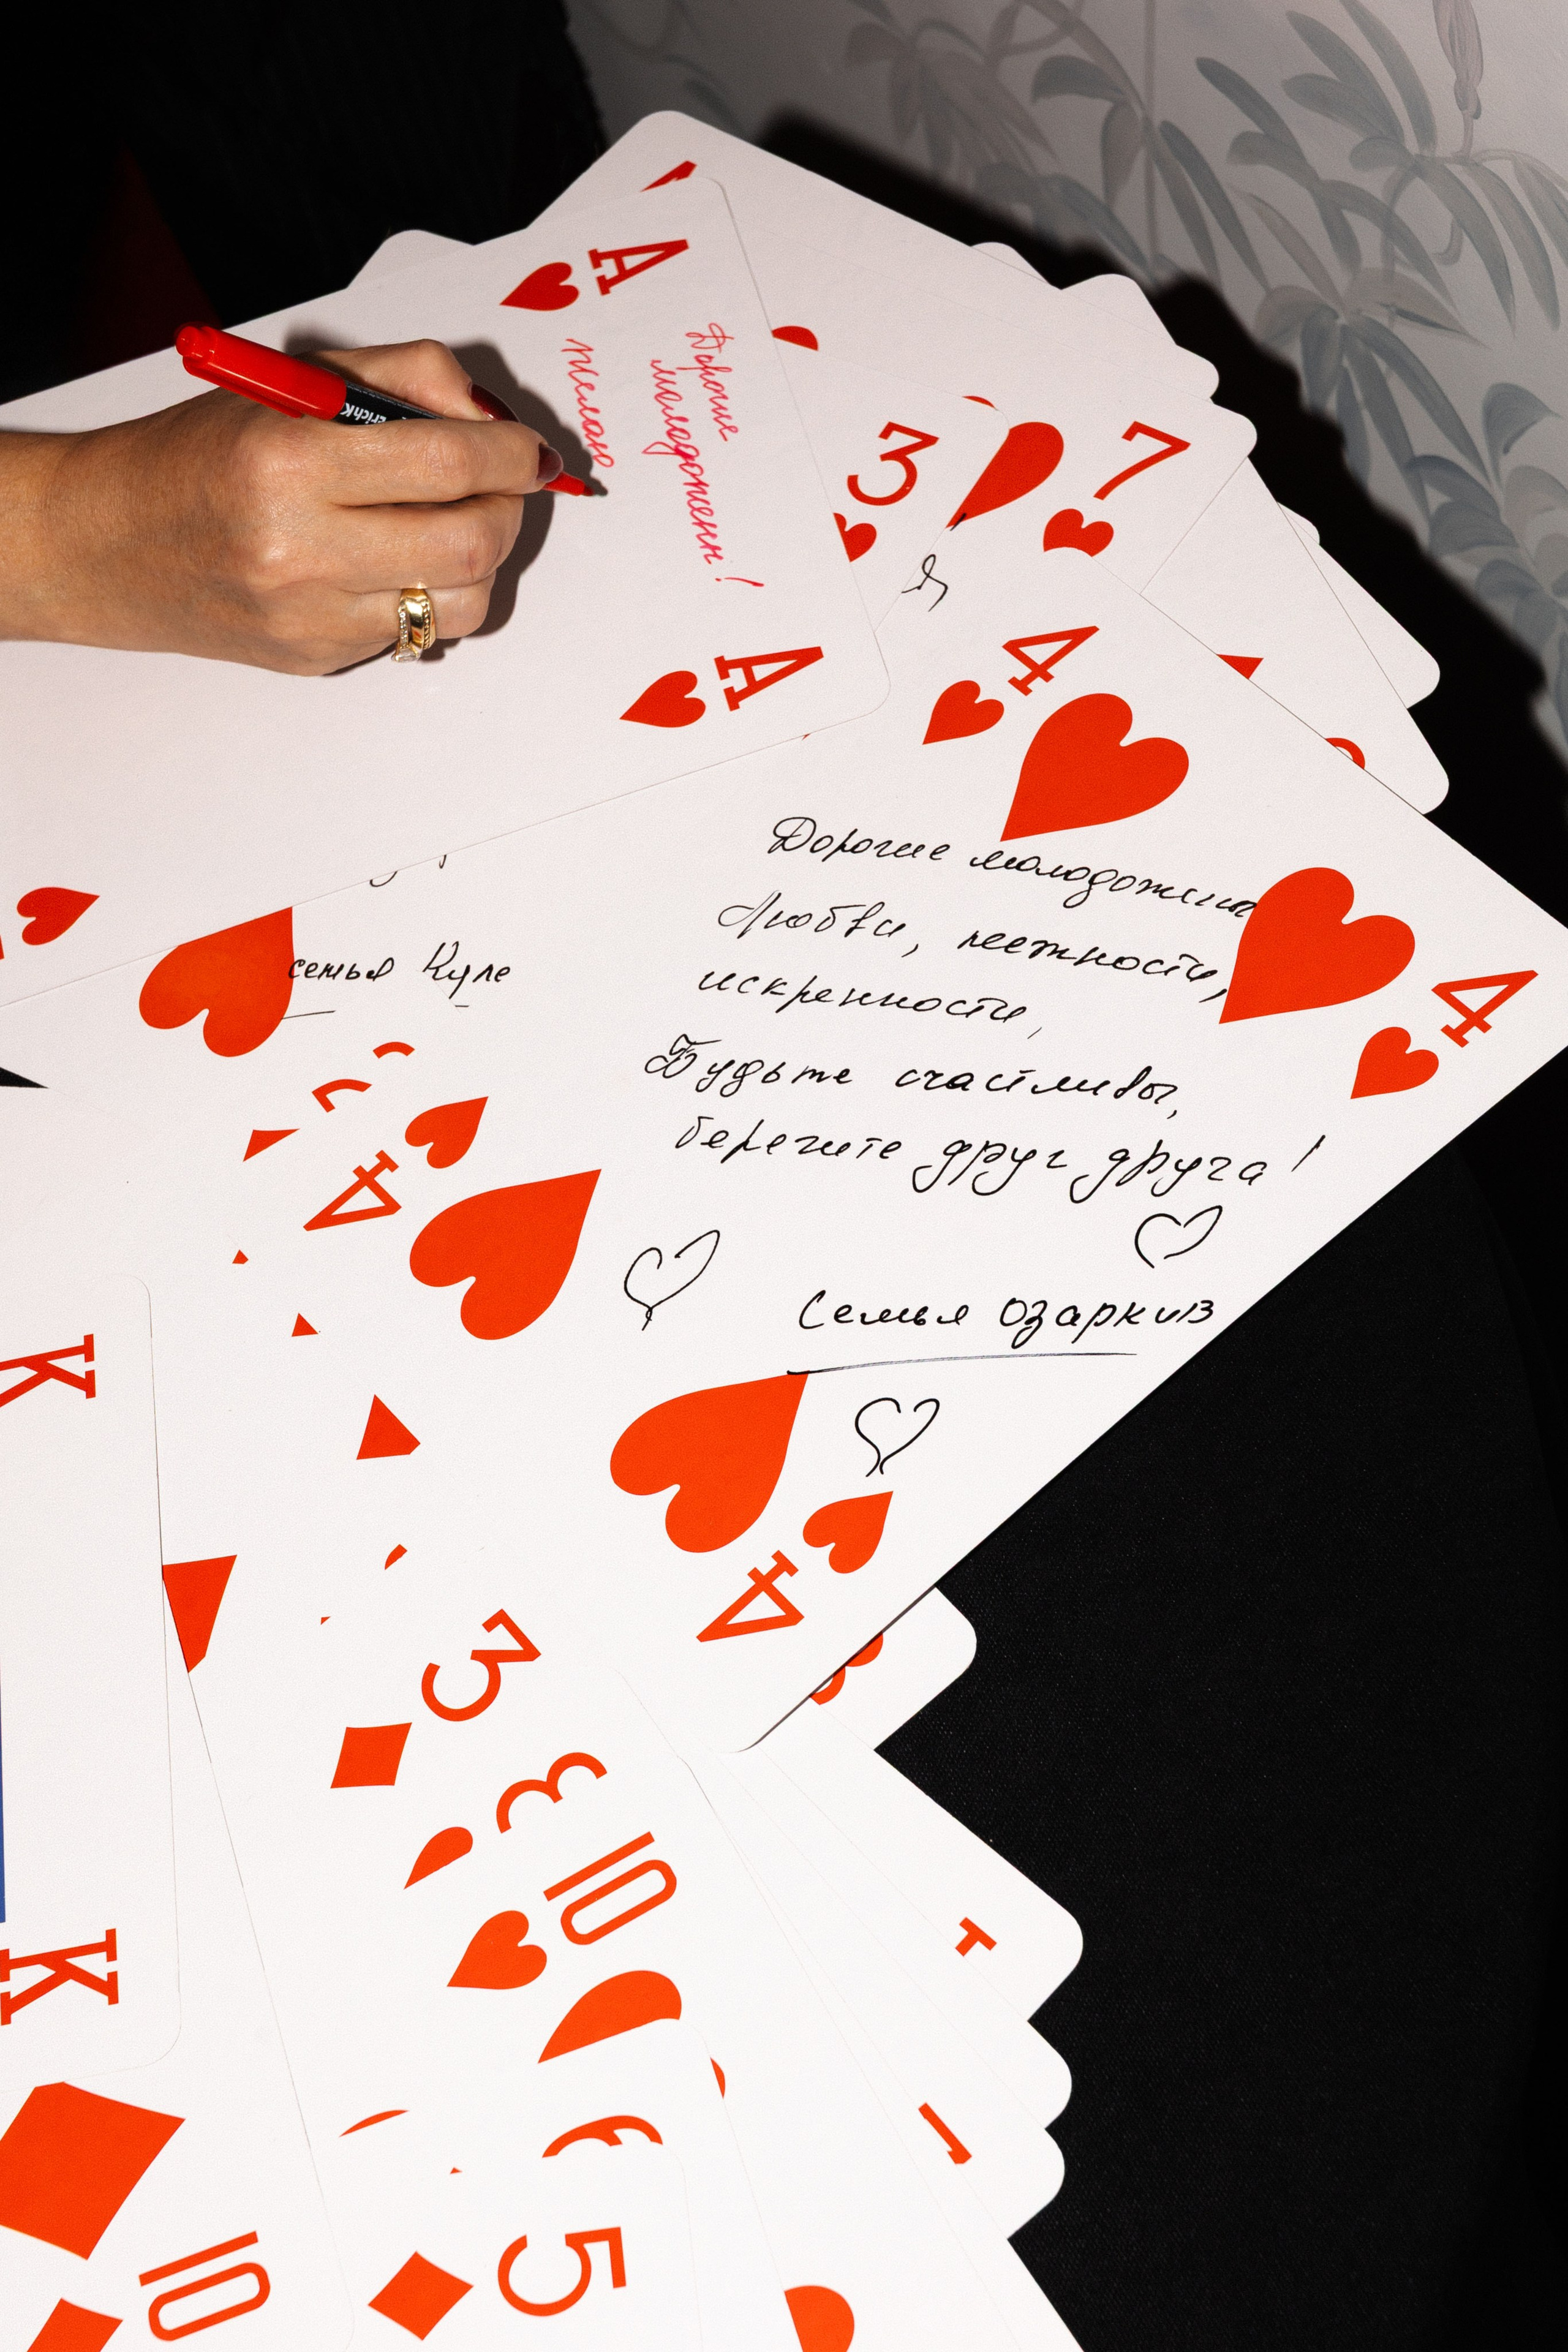 A
Дорогие
молодожены!
желаю
A
3
7
Я
4
Дорогие молодожены
Любви, нежности,
искренности,
Будьте счастливы,
берегите друг друга!
Семья Озаркив
4
семья Куле
4
4
K
K
3
3
10
5
10